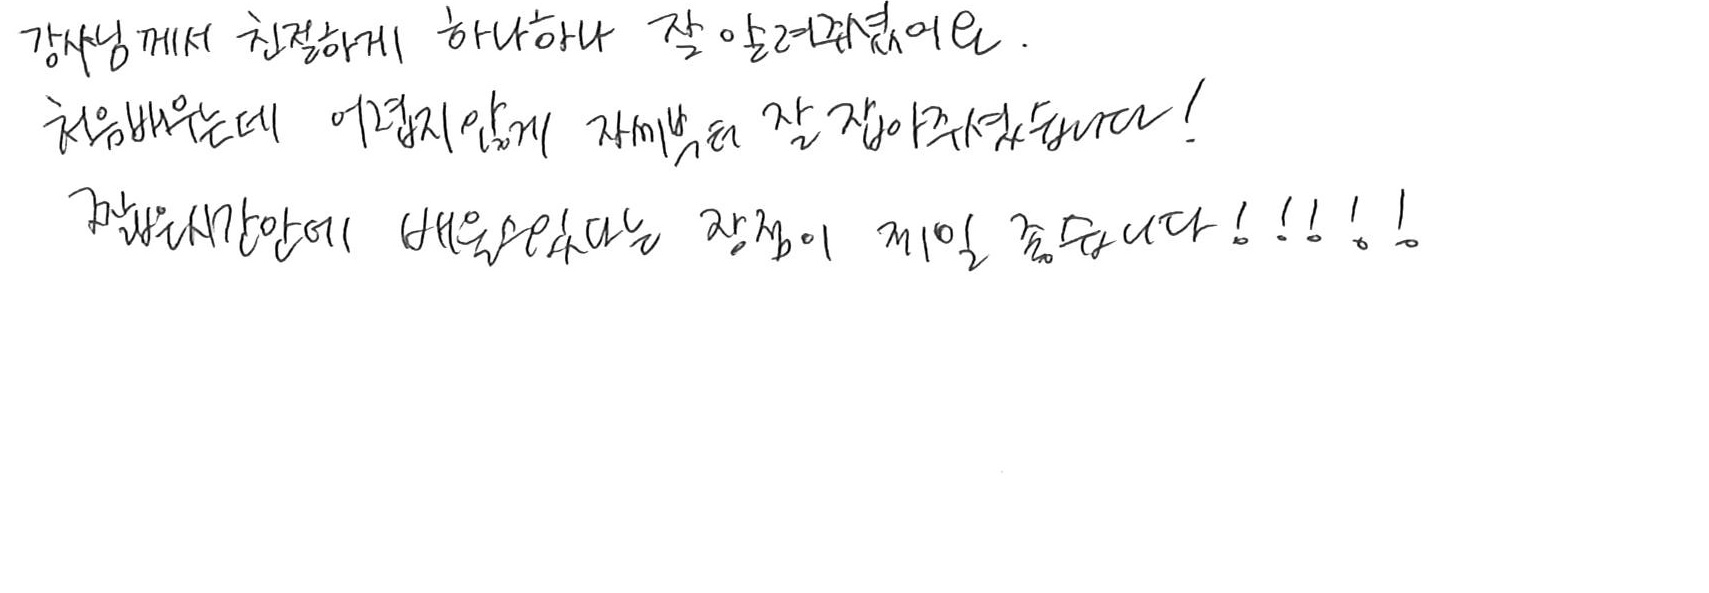 강사님께서 친절하게 하나하나 잘 알려주셨어요.
처음배우는데 어렵지않게 자세부터 잘 잡아주셨습니다!
짧은시간안에 배울수있다는 장점이 제일 좋습니다!!!!!